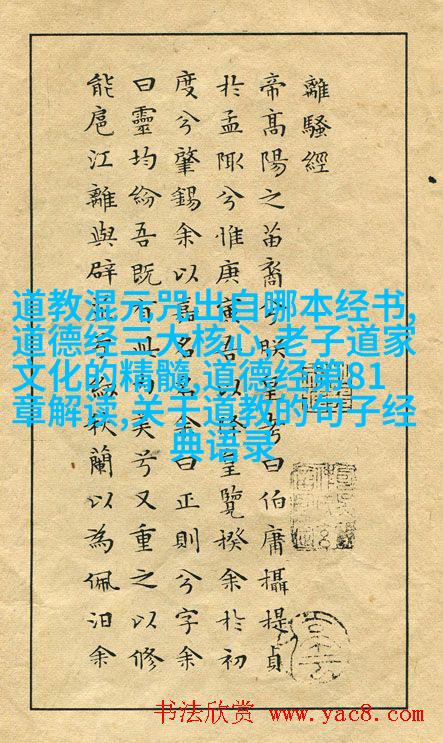 離騷經
帝高陽之苗裔兮朕皇考曰伯庸攝提貞
於孟陬兮惟庚寅吾以降皇覽揆余於初
度兮肇錫余以嘉名名余曰正則兮字余
曰靈均紛吾既有此內美兮又重之以修
能扈江離與辟芷兮紉秋蘭以為佩汩余
道教混元咒出自哪本经书,
道德经三大核心,老子道家
文化的精髓,道德经第81
章解读,关于道教的句子经
典语录
书法欣赏 www.yac8.com